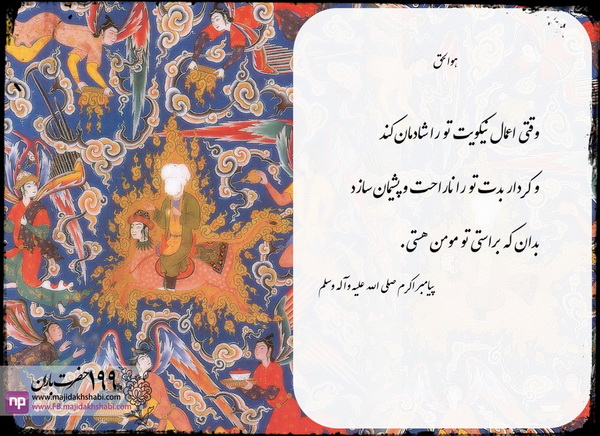 هوالحق
وقتی اعمال نیکویت تو را شادمان کند
و کردار بدت تو را ناراحت و پشیمان سازد
بدان که براستی تو مومن هستی.
پیامبر اکرم صلی الله علیه وآله وسلم
۱۹۹ حضرت باران
np www.majidakhshabi.com
www.FB.majidakhshabi.com